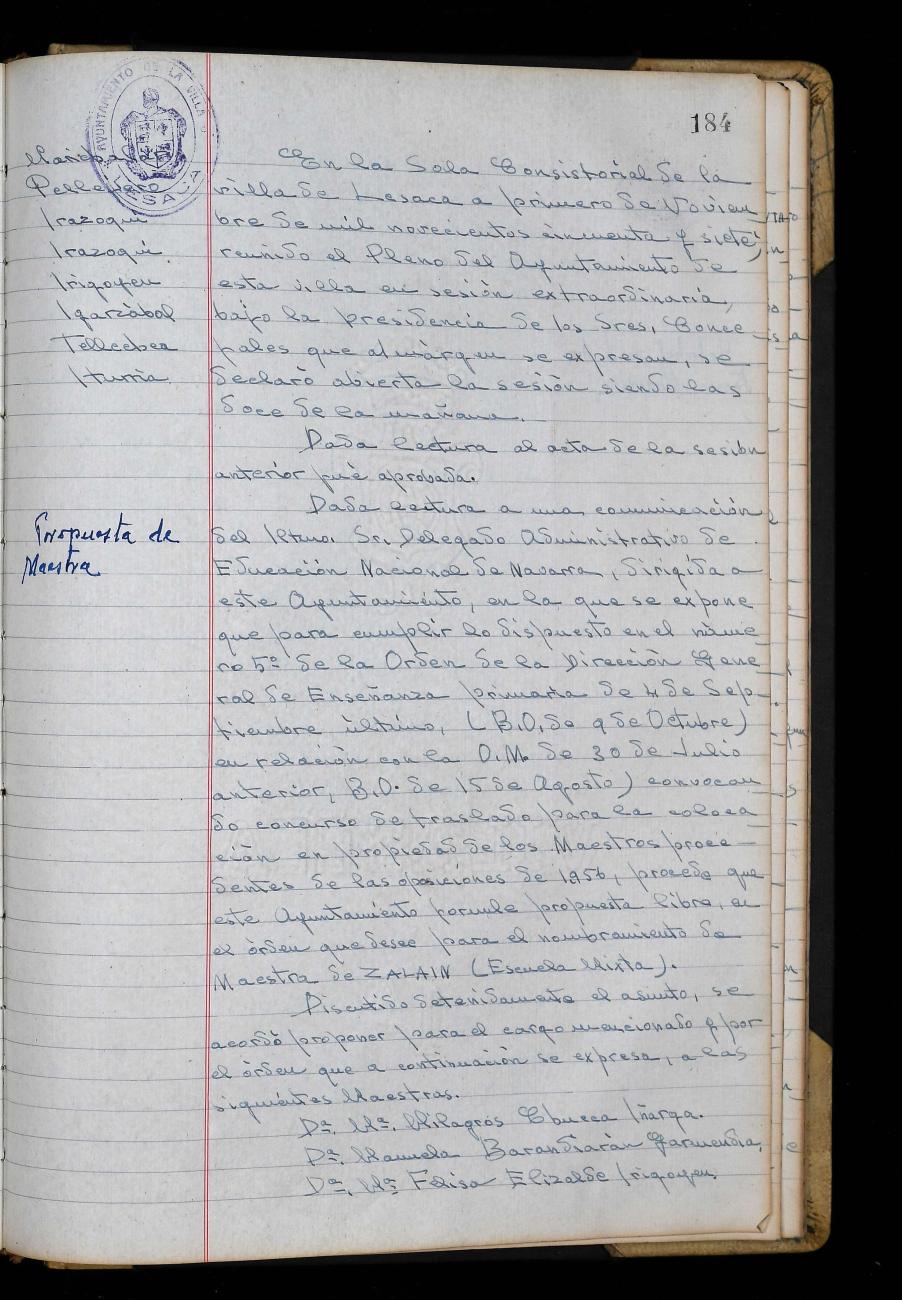 184
AYUNTAMIENTO DE LA VILLA
LESACA
Irazoqui
Irazoqui
Irigoyen
Igarzábal
Tellechea
Iturria.
Propuesta de
Maestra
En la Sala Consistorial de la
villa de Lesaca a primero de Noviem
bre de mil novecientos cincuenta y siete,
reunido el Pleno del Ayuntamiento de
esta villa en sesión extraordinaria,
bajo la presidencia de los Sres. Conce
jales que al márgen se expresan, se
declaró abierta la sesión siendo las
doce de la mañana.
Dada lectura al acta de la sesión
anterior fué aprobada.
Dada lectura a una comunicación
del Iltmo. Sr. Delegado Administrativo de
Educación Nacional de Navarra, dirigida a
este Ayuntamiento, en la que se expone
que para cumplir lo dispuesto en el núme
ro 5º de la Orden de la Dirección Gene
ral de Enseñanza primaria de 4 de Sep-
tiembre último, (B.O. de 9 de Octubre)
en relación con la O.M. de 30 de Julio
anterior, B.O. de 15 de Agosto) convocan
do concurso de traslado para la coloca
ción en propiedad de los Maestros proce-
dentes de las oposiciones de 1956, procede que
este Ayuntamiento formule propuesta libre, en
el órden que desee para el nombramiento de
Maestra de ZALAIN (Escuela Mixta).
Discutido detenidamente el asunto, se
acordó proponer para el cargo mencionado y por
el órden que a continuación se expresa, a las
siguientes Maestras.
Dª. Mª. Milagros Chueca Iñarga.
Dª. Manuela Barandiarán Garmendia,
Dª. Mª Felisa Elizalde Irigoyen.